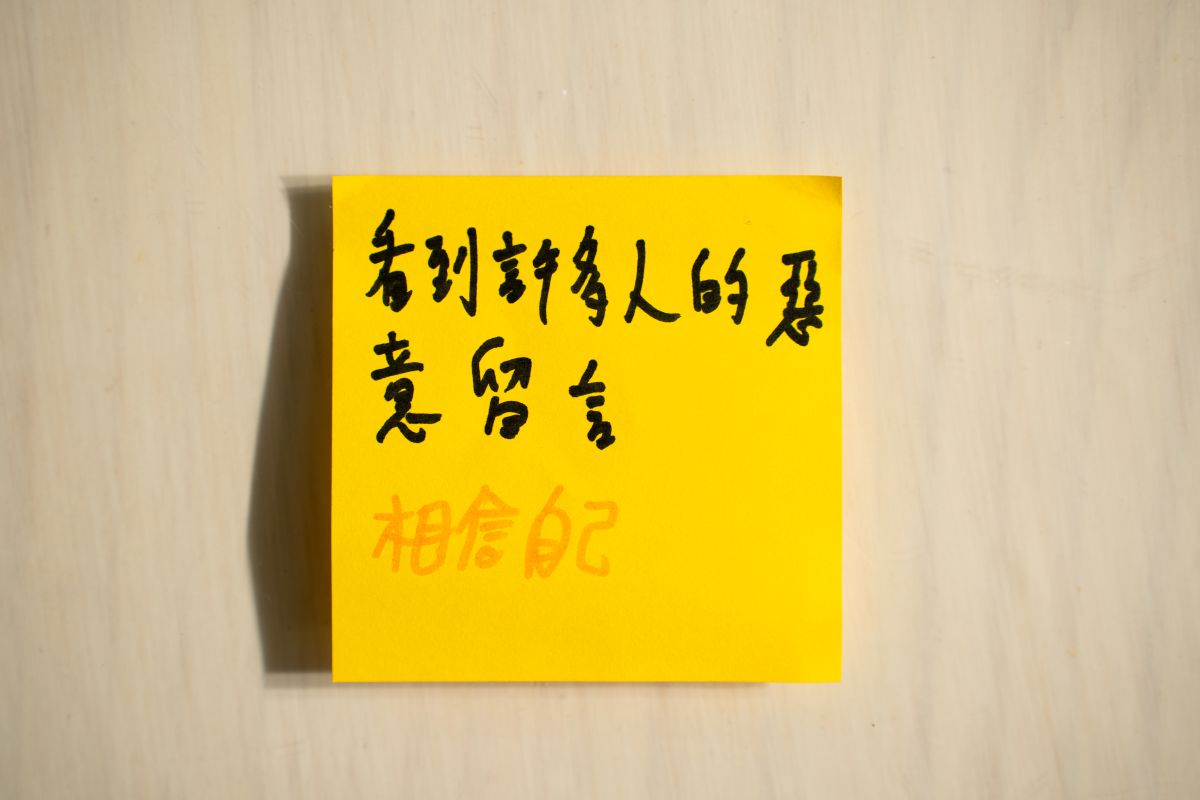 看到許多人的惡
意留言
相信自己